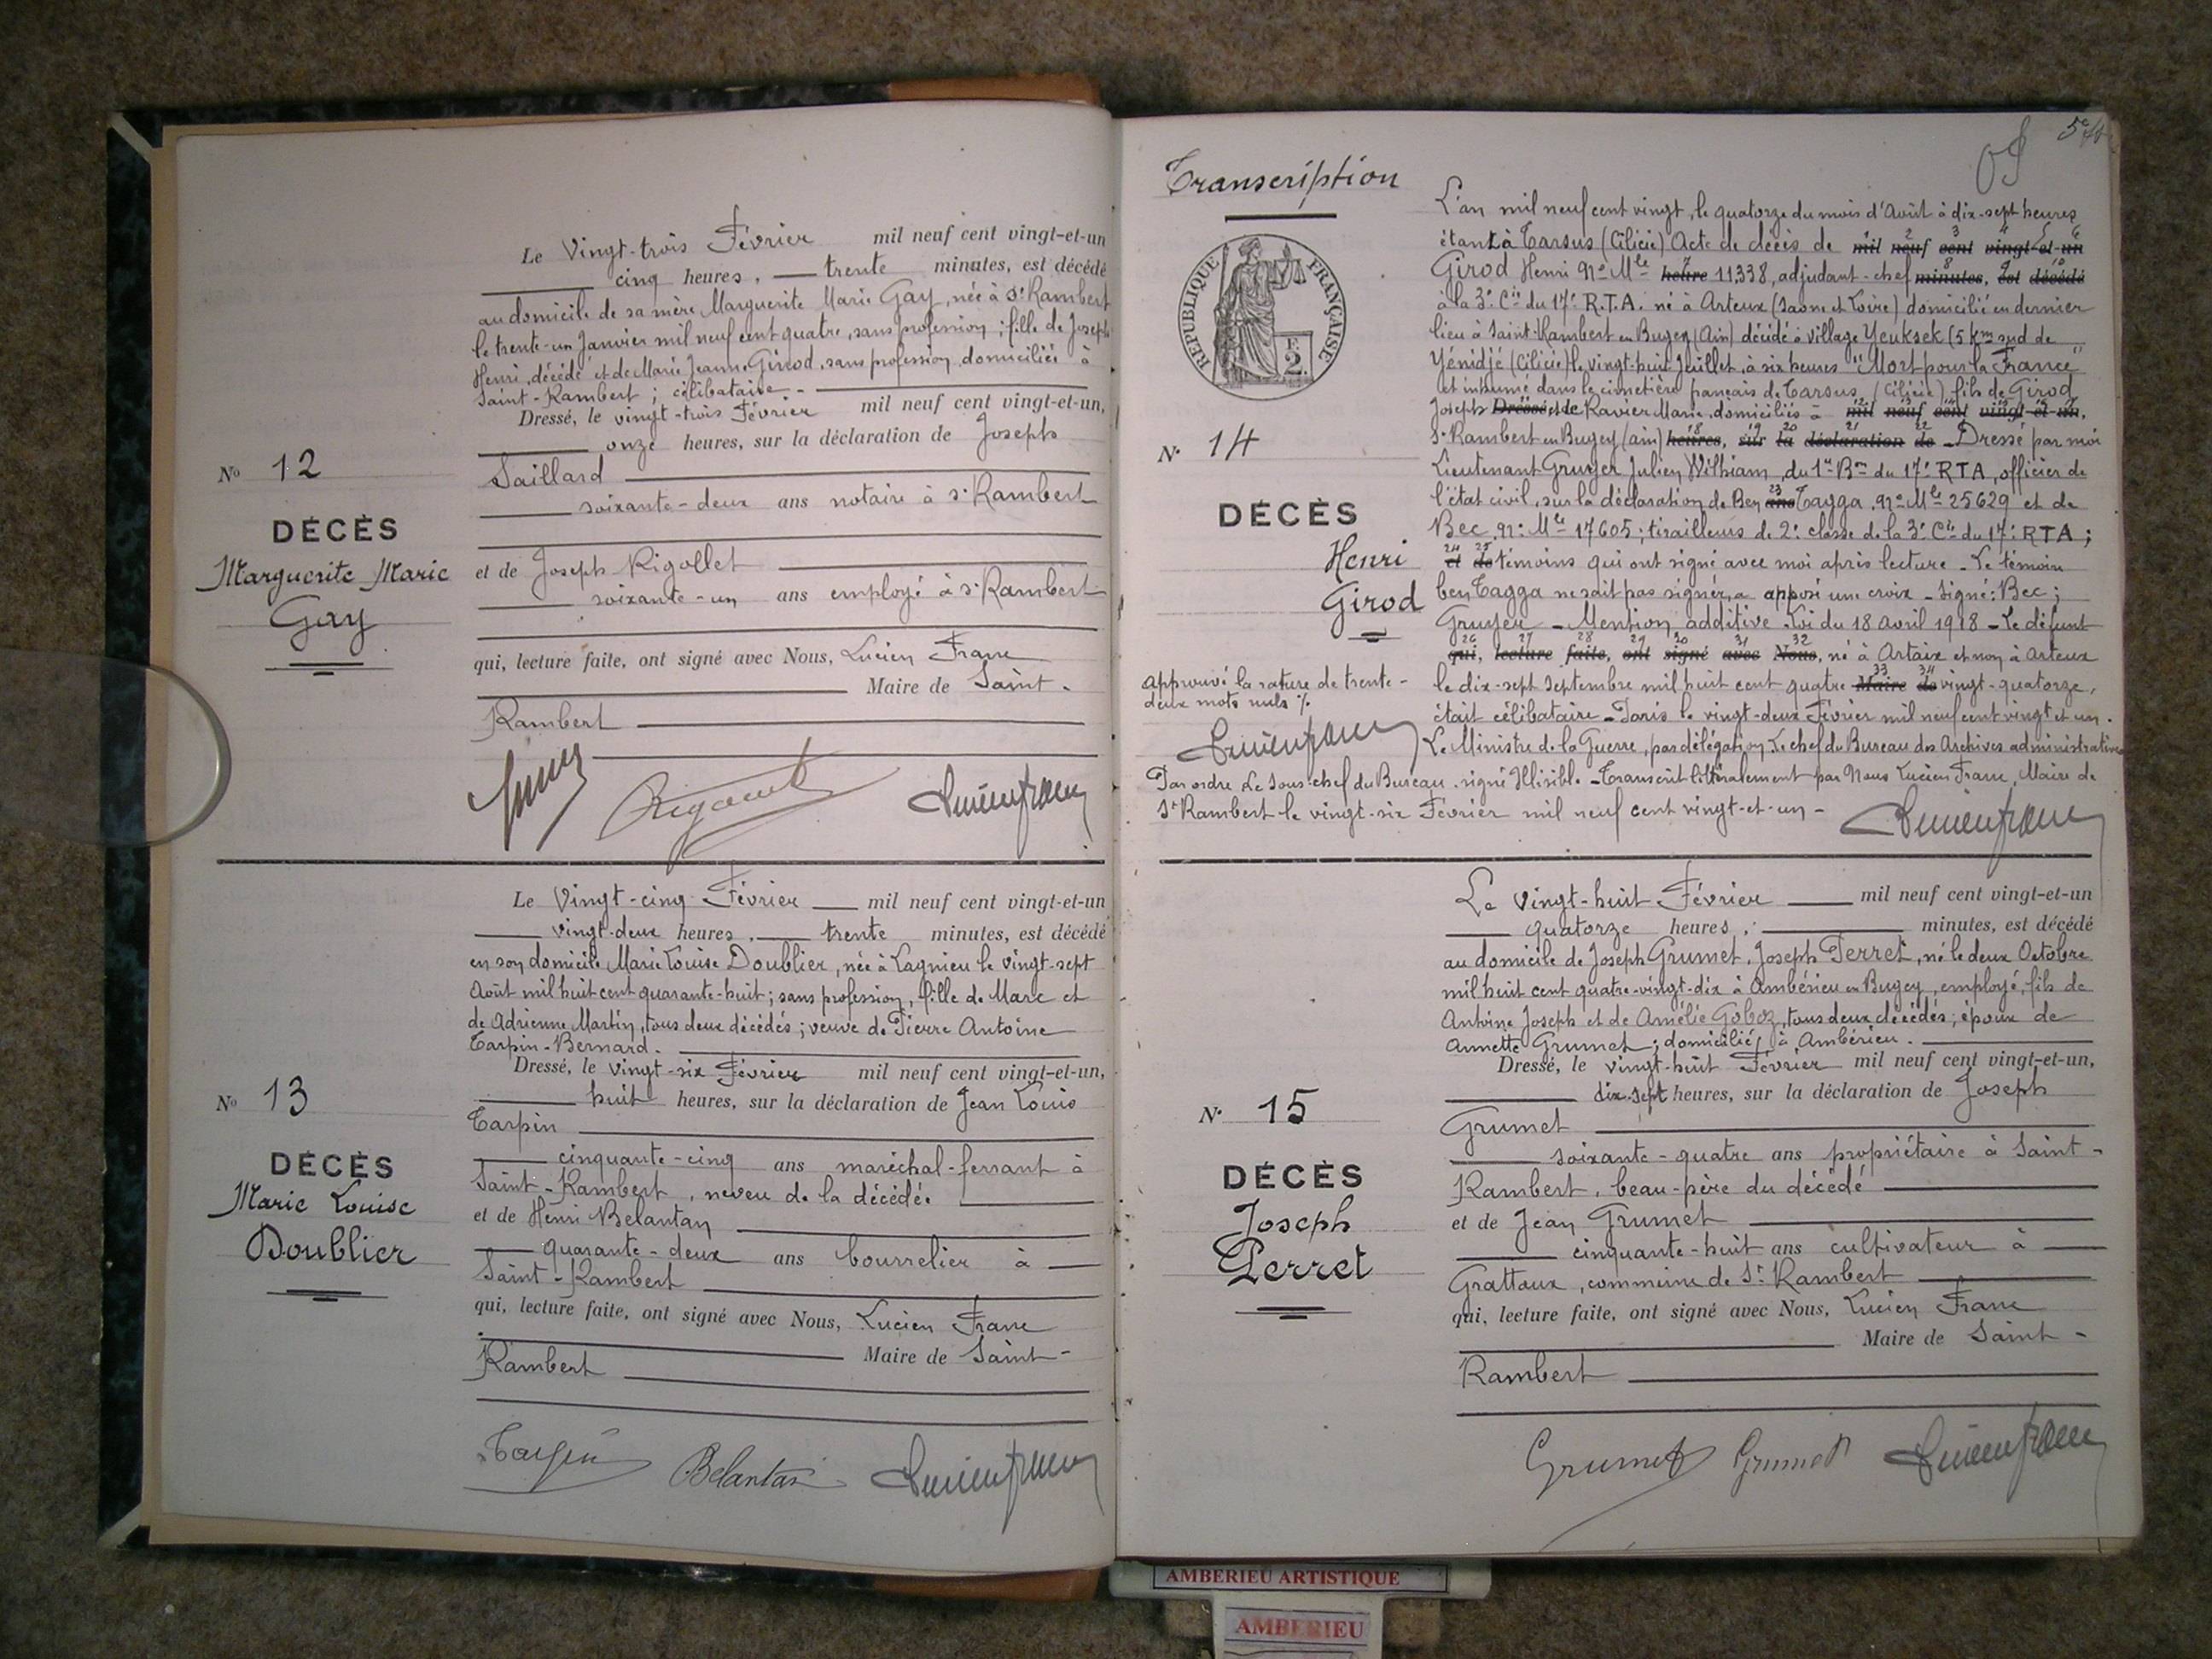 Le Vingt-trois Février mil neuf cent vingt-et-un
cinq heures, trente minutes, est décédé
au domicile de sa mère Marguerite Marie Gay, née à St Rambert
le trente-un Janvier mil neuf cent quatre, sans profession; fille de Joseph
Henri, décédé et de Marie Jeanne Girod, sans profession, domiciliés à
Saint-Rambert; célibataire -
Dressé, le vingt-trois Février mil neuf cent vingt-et-un,
onze heures, sur la déclaration de Joseph
Saillard
soixante-deux ans notaire à St Rambert
et de Joseph Rigollet
soixante-un ans employé à St Rambert
qui, lecture faite, ont signé avec Nous, Lucien Franc
Maire de Saint-
Rambert
No 12
DÉCÈS
Marguerite Marie
Gay
Lucien Franc
Le Vingt-cinq Février mil neuf cent vingt-et-un
vingt-deux heures, trente minutes, est décédé
en son domicile Marie Louise Doublier, née à Lagnieu le vingt-sept
Août mil huit cent quarante-huit; sans profession, fille de Marc et
de Adrienne Martin, tous deux décédés; veuve de Pierre Antoine
Tarpin-Bernard.
Dressé, le vingt-six Février mil neuf cent vingt-et-un,
huit heures, sur la déclaration de Jean Louis
Tarpin
cinquante-cinq ans maréchal-ferrant à
Saint-Rambert, neveu de la décédée
et de Henri Belantan
quarante-deux ans bourrelier à
Saint-Rambert
qui, lecture faite, ont signé avec Nous, Lucien Franc
Maire de Saint-
Rambert
No 13
DÉCÈS
Marie Louise
Doublier
Tarpin Belantan Lucien Franc
5e ft
Transcription
RÉPUBLIQUE FRANÇAISE
2
L'an mil neuf cent vingt, le quatorze du mois d'Août à dix-sept heures
étant à Tarsus (Cilicie) Acte de décès de mil neuf cent vingt-et-un
Girod Henri No Mle heure 11338, adjudant-chef minutes, est décédé
à la 3e Cie du 17e R.T.A. né à Arteux (Saone et Loire) domicilié en dernier
lieu à Saint-Rambert en Bugey (Ain) décédé à village Yeuksek (5 km sud de
Yénidjé (Cilicie) le vingt-huit Juillet, à six heures "Mort pour la France"
et inhumé dans le cimetière français de Tarsus (Cilicie), fils de Girod
Joseph Dressé, le et de Ravier Marie, domiciliés à mil neuf cent vingt-et-un,
St Rambert en Bugey (ain) heures, sur la déclaration de - Dressé par moi
Lieutenant Gruyer Julien William, du 1er Bon du 17e RTA, officier de
l'état civil, sur la déclaration de Ben ans Tagga, No Mle 25629 et de
Bec, No Mle 17605; tirailleurs de 2e classe de la 3e Cie du 17e RTA;
et de témoins qui ont signé avec moi après lecture - Le témoin
ben Tagga ne sait pas signer, a apposé une croix - Signé: Bec;
Gruyer - Mention additive Loi du 18 avril 1918 - Le défunt
qui, lecture faite, ont signé avec Nous, né à Artaix et non à Arteux
le dix-sept Septembre mil huit cent quatre Maire de vingt-quatorze,
était célibataire - Paris le vingt-deux Février mil neuf cent vingt et un.
Le Ministre de la Guerre, par délégation Le chef du Bureau des Archives administratives
Par ordre Le Sous-chef du Bureau. signé Illisible - Transcrit littéralement par Nous Lucien Franc, Maire de
St Rambert le vingt-six Février mil neuf cent vingt-et-un -
Lucien Franc
No 14
DÉCÈS
Henri
Girod
Approuvé la rature de trente-
deux mots nuls %.
Lucien Franc
Le Vingt-huit Février mil neuf cent vingt-et-un
quatorze heures, minutes, est décédé
au domicile de Joseph Grumet, Joseph Perret, né le deux Octobre
mil huit cent quatre-vingt-dix à Ambérieu en Bugey, employé, fils de
Antoine Joseph et de Amélie Goboz, tous deux décédés; époux de
Annette Grumet; domiciliés à Ambérieu.
Dressé, le vingt-huit Février mil neuf cent vingt-et-un,
dix-sept heures, sur la déclaration de Joseph
Grumet
soixante-quatre ans propriétaire à Saint-
Rambert, beau-père du décédé
et de Jean Grumet
cinquante-huit ans cultivateur à
Grattoux, commune de St Rambert
qui, lecture faite, ont signé avec Nous, Lucien Franc
Maire de Saint-
Rambert
No 15
DÉCÈS
Joseph
Perret
Grumet Grumet Lucien Franc
AMBERIEU ARTISTIQUE
AMBERIEU